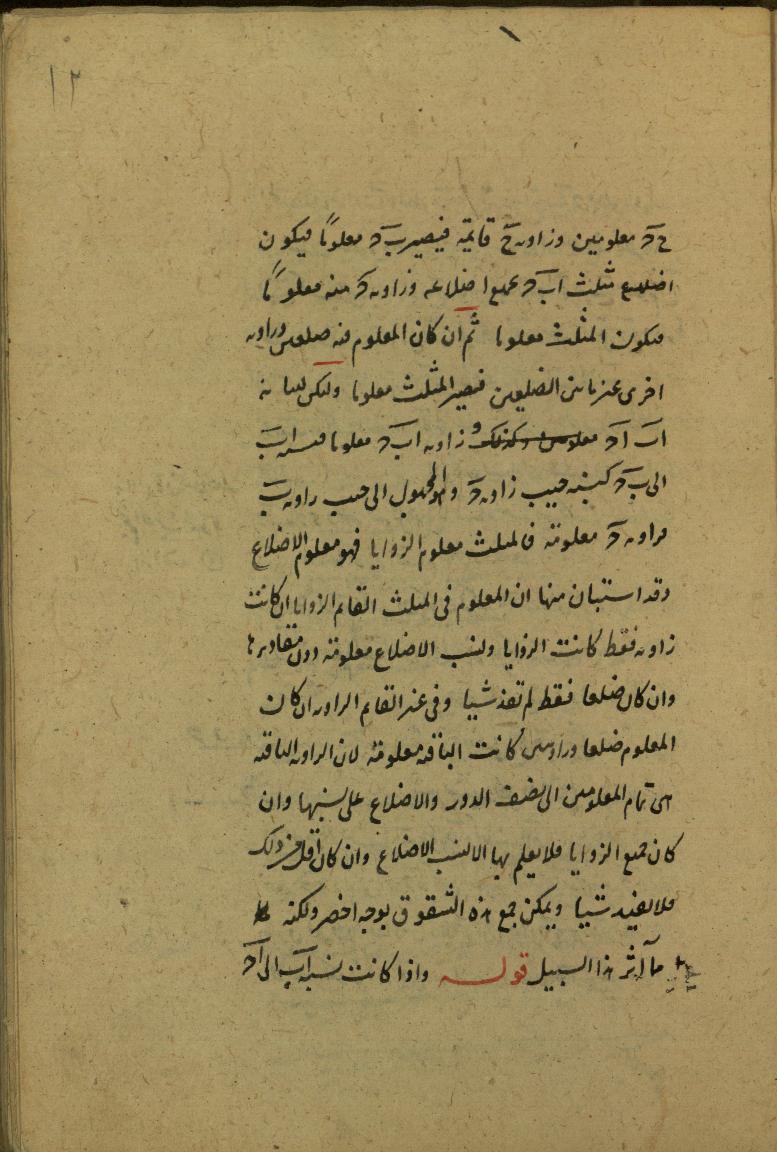 ١٢
ح د معلومين وزاويه ح قايمة فيصير ب د معلومًا فيكون
اضلاع مثلث ا ب د جميع اضلاعه وزاويه د منه معلومًا
فيكون المثلث معلوما ثم ان كان المعلوم منه ضلعين وزاويه
اخرى غير ما بين الضلعين فيصير المثلث معلوما وليكن لبيانه
ا ب ا د وزاويه ا ب د معلوما فنسبه ا ب
الى ب د كنسبه جيب زاويه د وهو المجهول الى جيب زاويه ب
فزاويه د معلومة فالمثلث معلوم الزوايا فهو معلوم الاضلاع
وقد استبان منها ان المعلوم فى المثلث القايم الزوايا ان كانت
زاويه فقط كانت الزوايا ونسب الاضلاع معلومة دون مقاديرها
وان كان ضلعا فقط لم تفد شيا وفى غير القايم الزاويه ان كان
المعلوم ضلعا وزاويتين كانت الباقيه معلومة لان الزاويه الباقيه
هى تمام المعلومين الى نصف الدور والاضلاع على نسبها وان
كان جميع الزوايا فلا يعلم بها الا نسب الاضلاع وان كان اقل من ذلك
فلا يفيد شيا ويمكن جمع هذه الشقوق بوجه اخصر ولكنه
ما آثر هذا السبيل قوله واذا كانت نسبه ا ب الى ا د